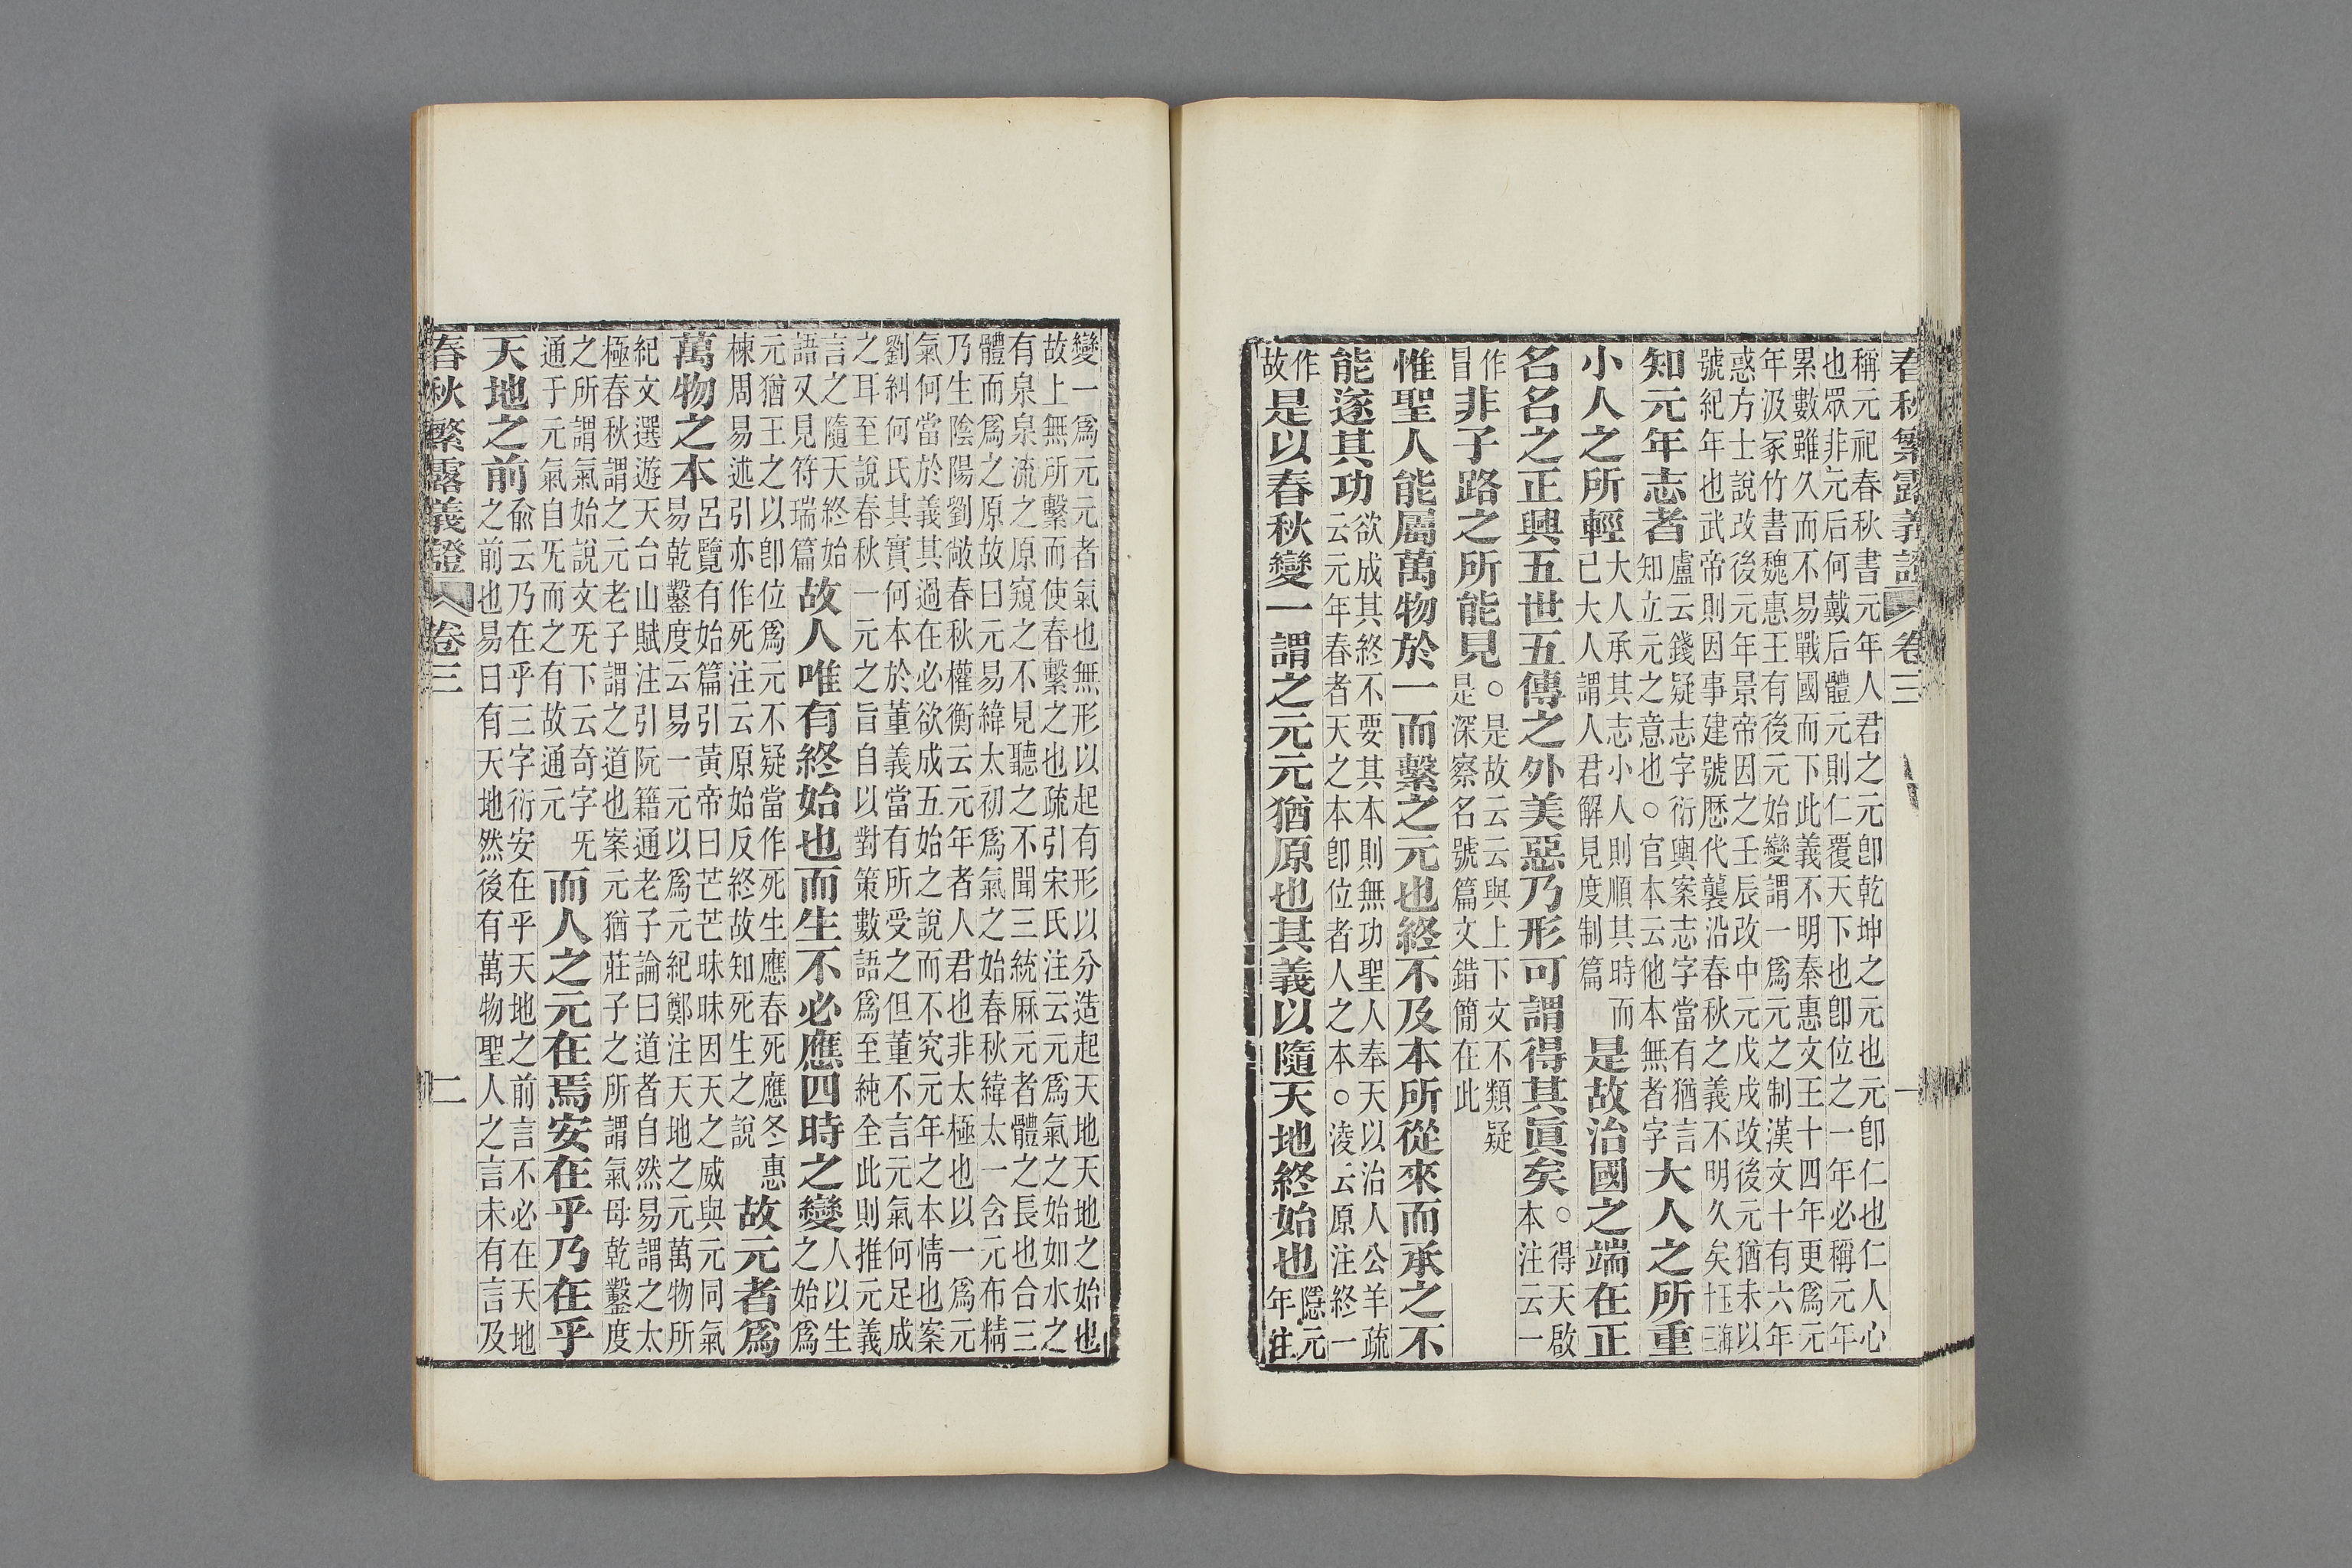 春秋繁露義證 卷三 一
稱元祀春秋書元年人君之元卽乾坤之元也元卽仁也仁人心
也眾非元后何戴后體元則仁覆天下也卽位之一年必稱元年
累數雖久而不易戰國而下此義不明秦惠文王十四年更爲元
年汲冢竹書魏惠王有後元始變謂一爲元之制漢文十有六年
惑方士說改後元年景帝因之壬辰改中元戊戌改後元猶未以
號紀年也武帝則因事建號歷代襲沿春秋之義不明久矣玉海十三
知元年志者盧云錢疑志字衍輿案志字當有猶言
知立元之意也○官本云他本無者字大人之所重
小人之所輕大人承其志小人則順其時而
已大人謂人君解見度制篇是故治國之端在正
名名之正興五世五傳之外美惡乃形可謂得其眞矣○得天啟
本注云一
作
冒非子路之所能見○是故云云與上下文不類疑
是深察名號篇文錯簡在此
惟聖人能屬萬物於一而繫之元也終不及本所從來而承之不
能遂其功欲成其終不要其本則無功聖人奉天以治人公羊疏
云元年春者天之本卽位者人之本○淩云原注終一
作
故是以春秋變一謂之元元猶原也其義以隨天地終始也隱元
年注
變一爲元元者氣也無形以起有形以分造起天地天地之始也
故上無所繫而使春繫之也疏引宋氏注云元爲氣之始如水之
有泉泉流之原窺之不見聽之不聞三統厤元者體之長也合三
體而爲之原故曰元易緯太初爲氣之始春秋緯太一含元布精
乃生陰陽劉敞春秋權衡云元年者人君也非太極也以一爲元
氣何當於義其過在必欲成五始之說而不究元年之本情也案
劉糾何氏其實何本於董義當有所受之但董不言元氣何足成
之耳至說春秋一元之旨自以對策數語爲至純全此則推元義
言之隨天終始
語又見符瑞篇故人唯有終始也而生不必應四時之變人以生
之始爲
元猶王之以卽位爲元不疑當作死生應春死應冬惠
棟周易述引亦作死注云原始反終故知死生之說故元者爲
萬物之本呂覽有始篇引黃帝曰芒芒昧昧因天之威與元同氣
易乾鑿度云易一元以爲元紀鄭注天地之元萬物所
紀文選遊天台山賦注引阮籍通老子論曰道者自然易謂之太
極春秋謂之元老子謂之道也案元猶莊子之所謂氣母乾鑿度
之所謂氣始說文旡下云奇字旡
通于元氣自旡而之有故通元而人之元在焉安在乎乃在乎
天地之前俞云乃在乎三字衍安在乎天地之前言不必在天地
之前也易曰有天地然後有萬物聖人之言未有言及
春秋繁露義證 卷三 二